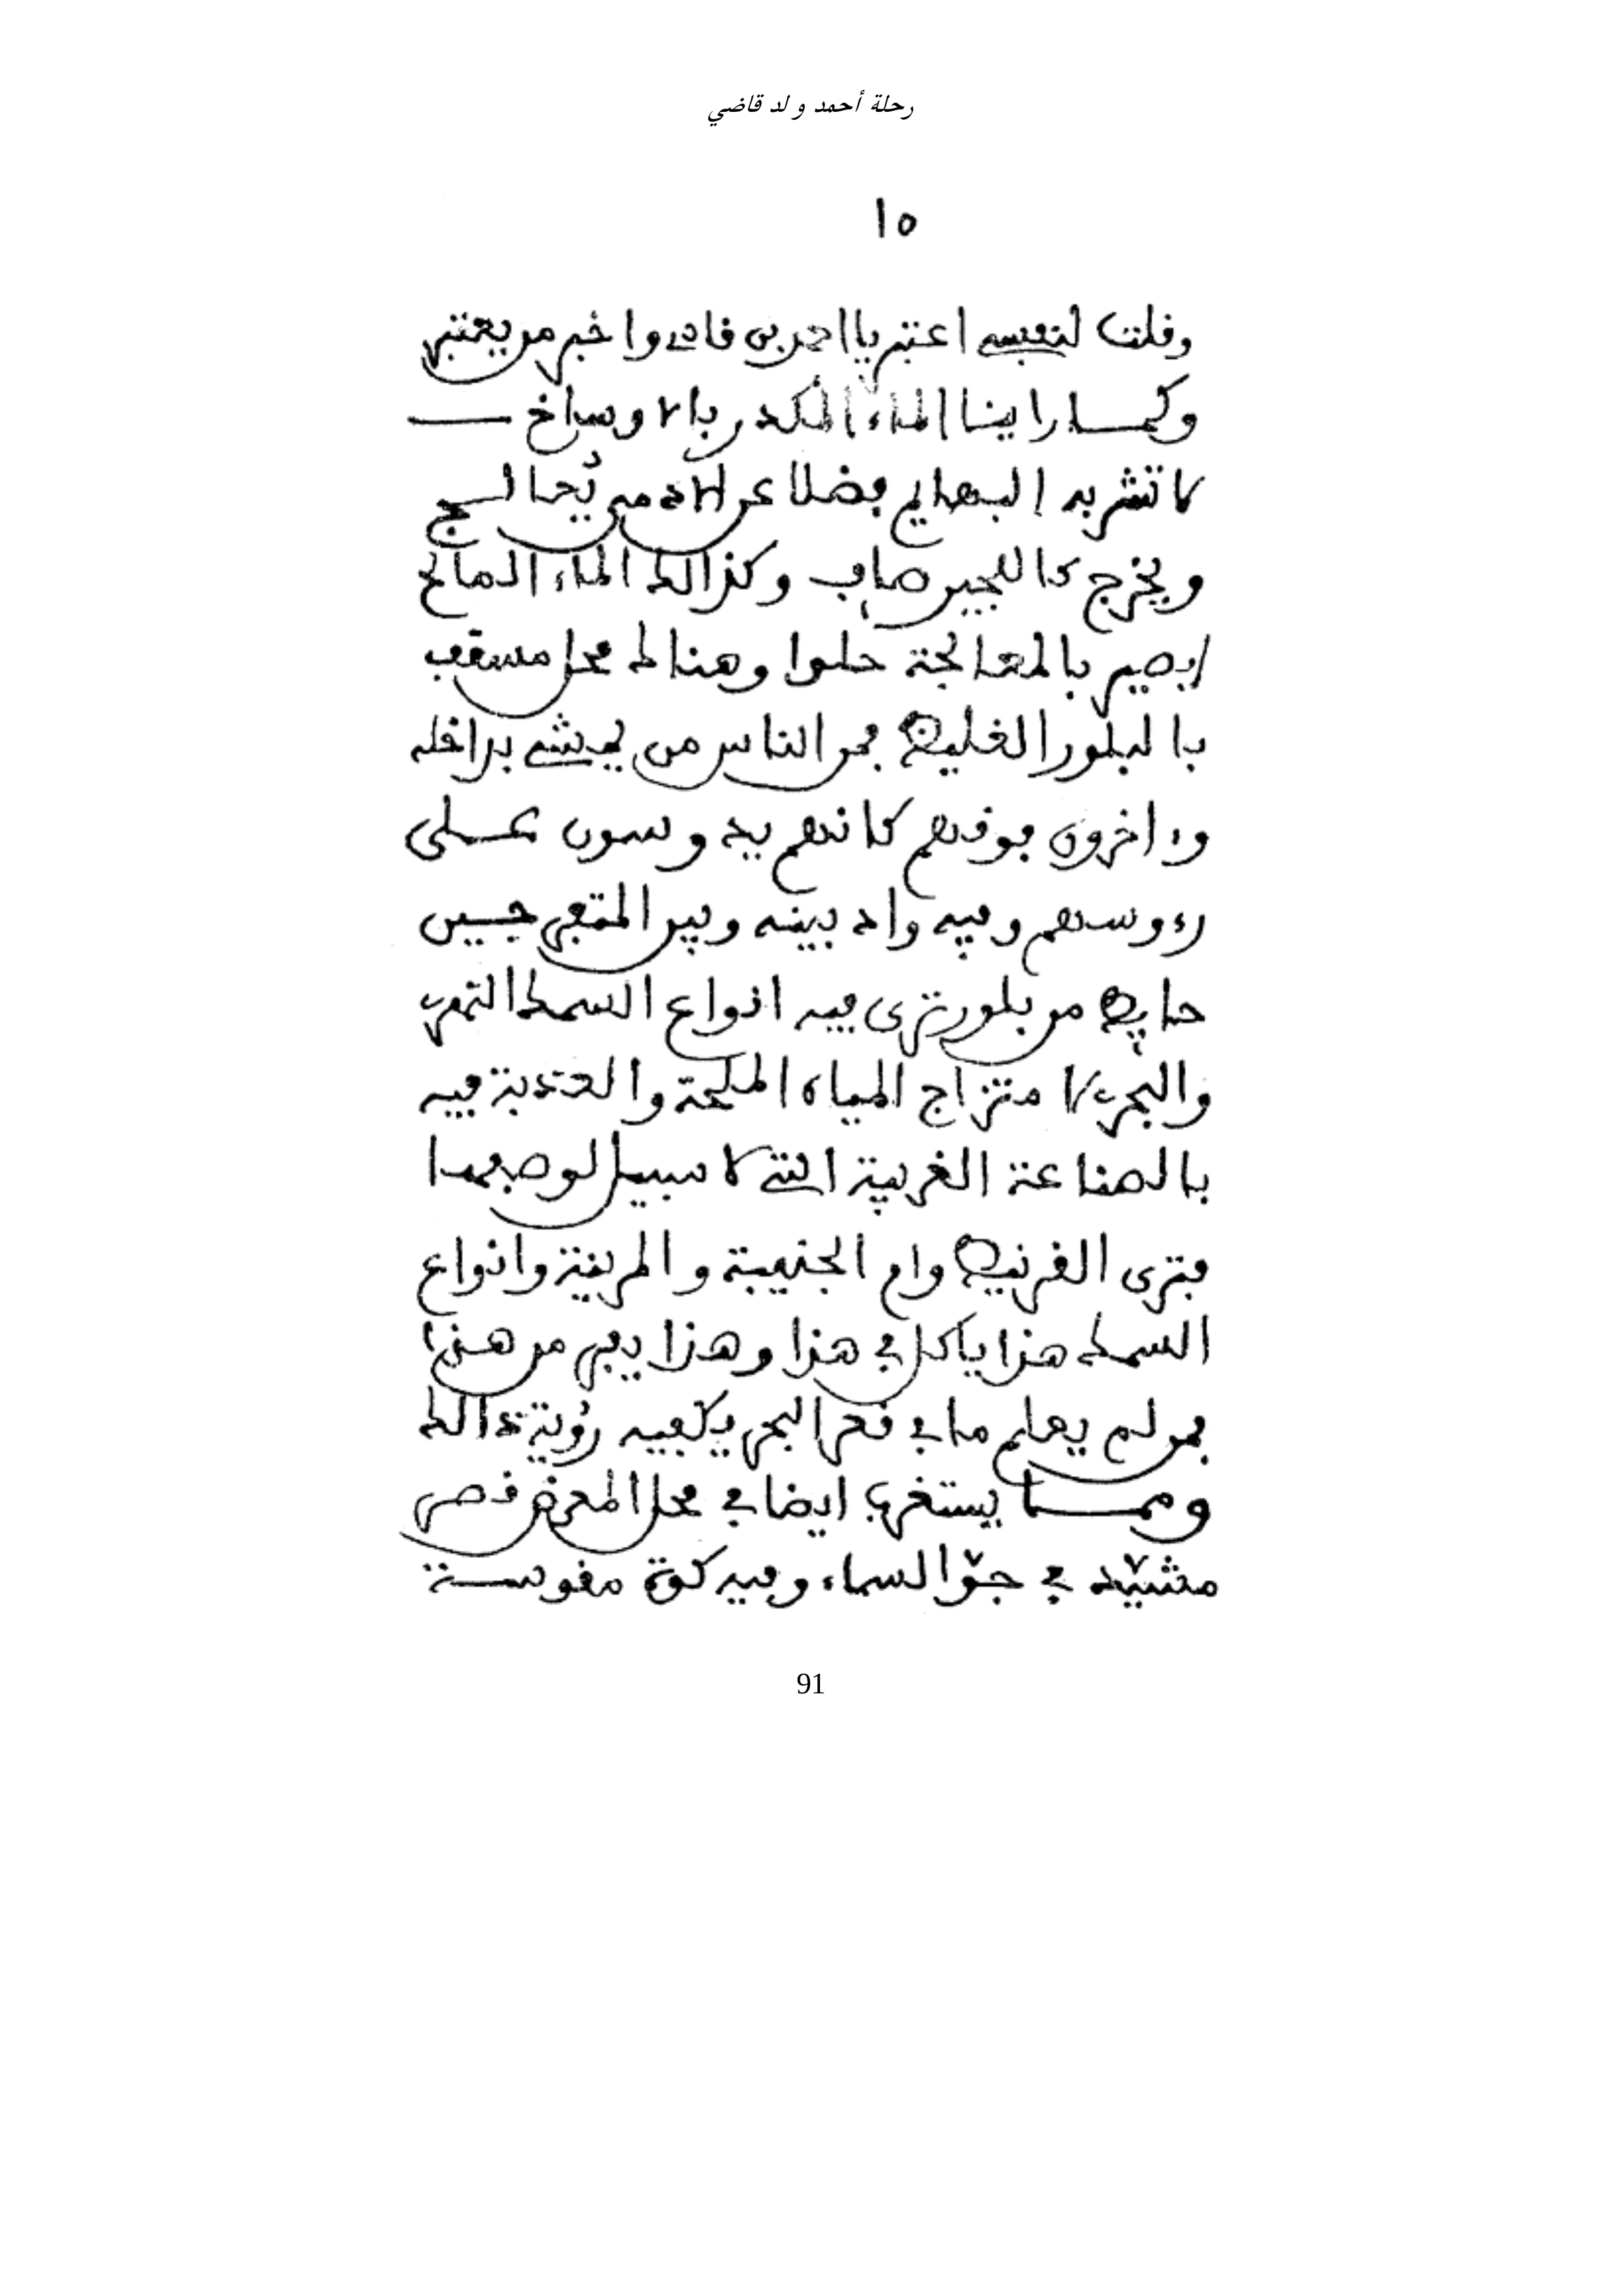 رحلة أحمد ولد قاضي
١٥
وقلت لنفسي اعتبر يا احمد بن قاضي واخبر من يعتبر
وكما راينا الماء المكدر بالاوساخ
لا تشربه البهايم فضلا عن الآدمي يُعالج
ويخرج كاللجين صاف وكذالك الماء المالح
يصير بالمعالجة حلوا وهناك محل مسقف
بالبلور الغليظ فمن الناس من يمشي بداخله
وءاخرون فوقهم كانهم يدوسون على
رءوسهم وفيه واد بينه وبين المتفرجين
حايط من بلور ترى فيه انواع السمك النهري
والبحري لامتزاج المياه الملحة والعذبة فيه
بالصناعة الغريبة التي لا سبيل لوصفها
فترى القرنيط وام الجنيبة والمرينة وانواع
السمك هذا ياكل في هذا وهذا يفر من هذا
فمن لم يعلم ما في قعر البحر يكفيه رؤية ذالك
ومما يستغرب ايضا في محل المعرض قصر
مشيّد في جوّ السماء وفيه كوة مقوسة
91